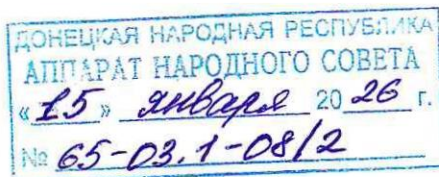 ДОНЕЦКАЯ НАРОДНАЯ РЕСПУБЛИКА
АППАРАТ НАРОДНОГО СОВЕТА
«15» января 2026 г.
№ 65-03.1-08/2